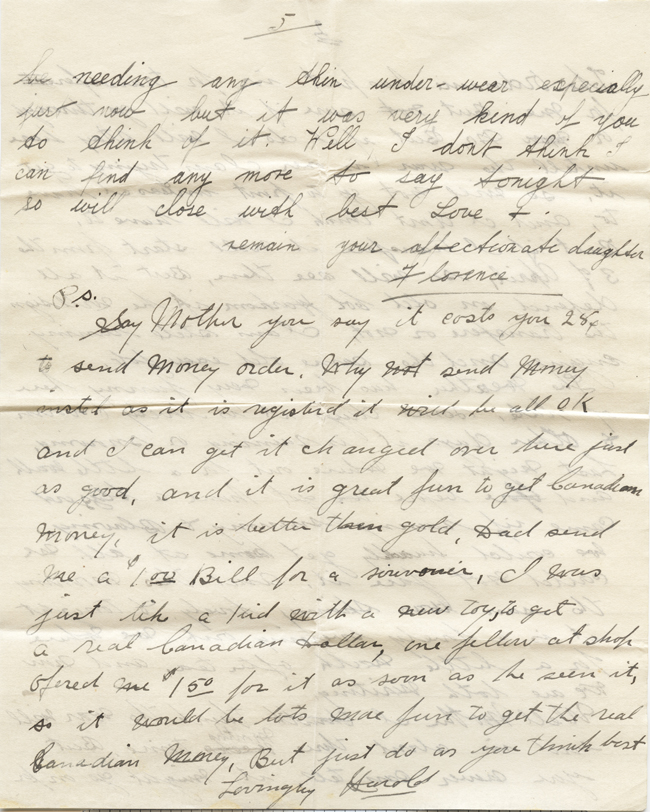 5
be needing any thin under-wear especially
just now but it was very kind of you
to think of it. Well, I dont think I
can find any more to say tonight
so will close with best Love + -
remain your affectionate daughter
Florence
P.s.
Say Mother you say it costs you 28¢
to send Money order. Why not send Money
insted as it is registerd it will be all OK
and I can get it changed over here just
as good, and it is great fun to get Canadian
Money, it is better then gold, Dad send
me a $1.00 Bill for a souvenier, I was
just lik a kid with a new toy, to get
a real Canadian Dollar, one fellow at shop
ofered me $1.50 for it as soon as he seen it,
so it would be lots more fun to get the real
Canadian Money, But just do as you think best
Lovingly Harold